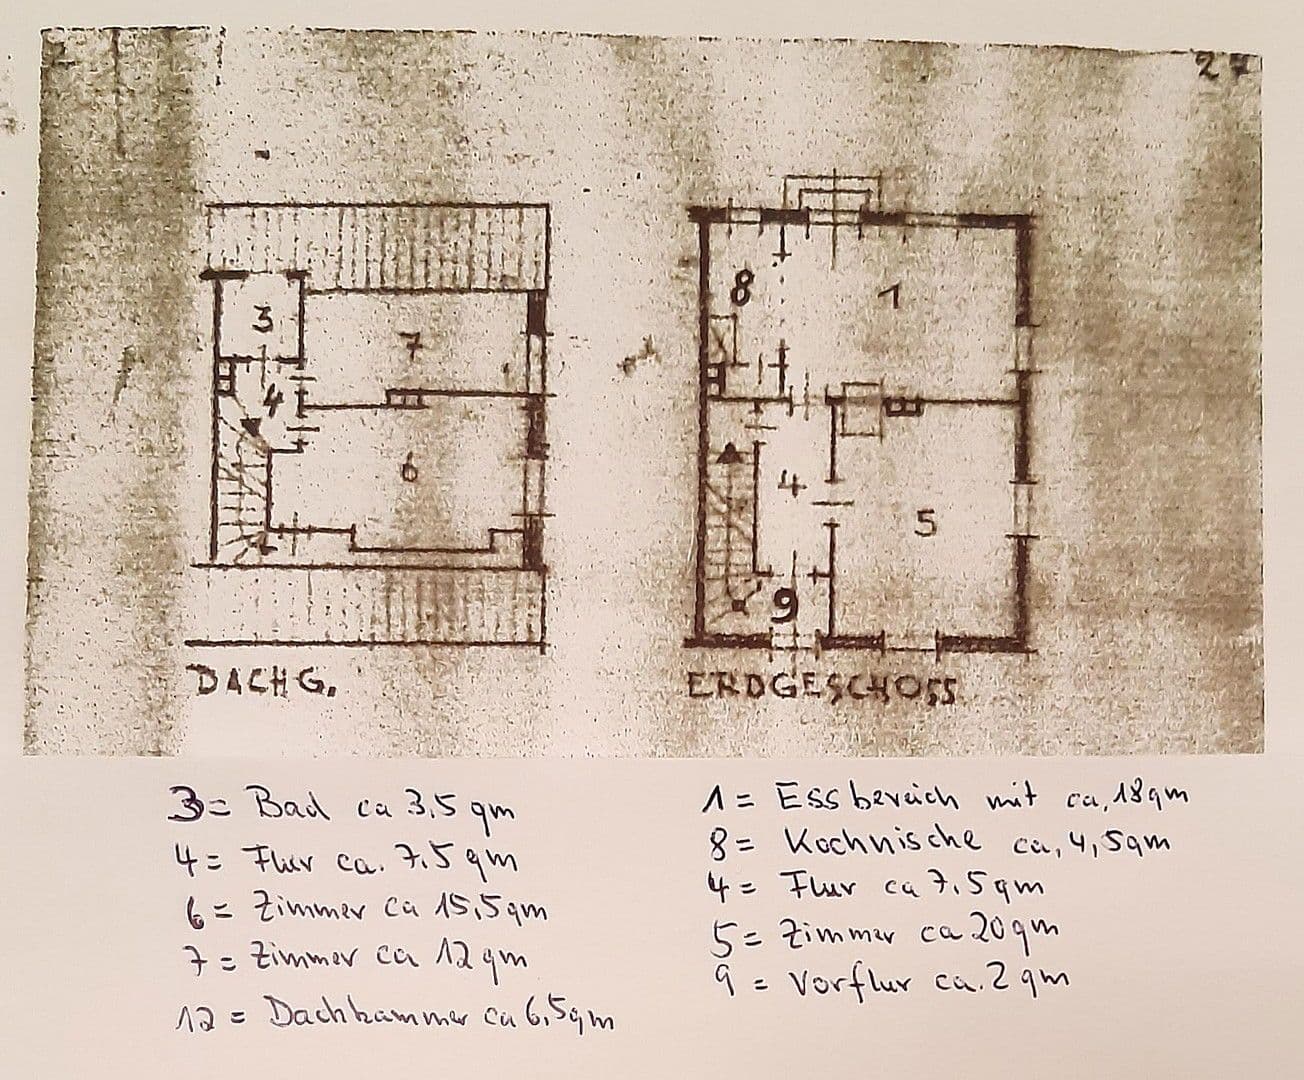 27
3
7
4
6
DACHG.
8
1
4
5
9
ERDGESCHOSS
3= Bad ca 3,5 qm
4= Flur ca. 7,5 qm
6= Zimmer ca 15,5 qm
7= Zimmer ca 12 qm
12 = Dachkammer ca 6,5 qm
1= Essbereich mit ca, 18 qm
8= Kochnische ca, 4,5 qm
4= Flur ca 7,5 qm
5= Zimmer ca 20 qm
9= Vorflur ca. 2 qm